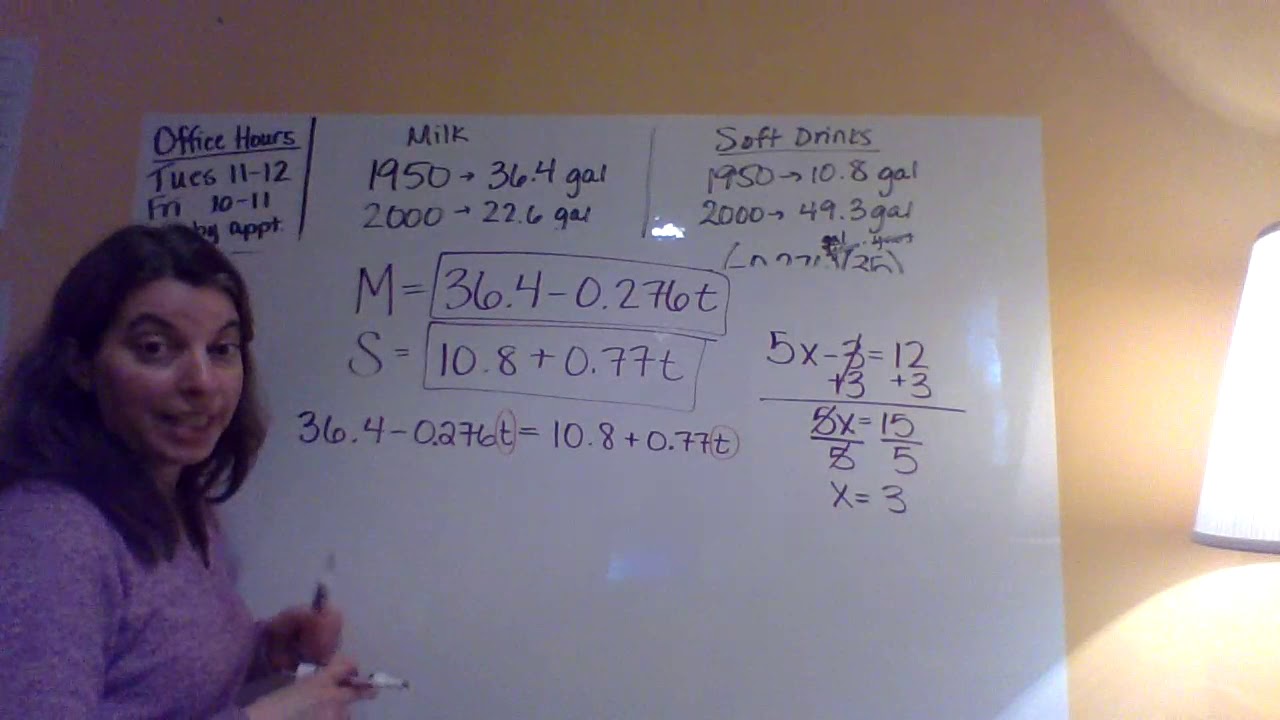 Office Hours
Tues 11-12
Fri 10-11
by appt.
Milk
1950 → 36.4 gal
2000 → 22.6 gal
Soft Drinks
1950 → 10.8 gal
2000 → 49.3 gal
M = 36.4 - 0.276t
S = 10.8 + 0.77t
36.4 - 0.276t = 10.8 + 0.77t
5x - 3 = 12
+3 +3
5x = 15
5 5
x = 3